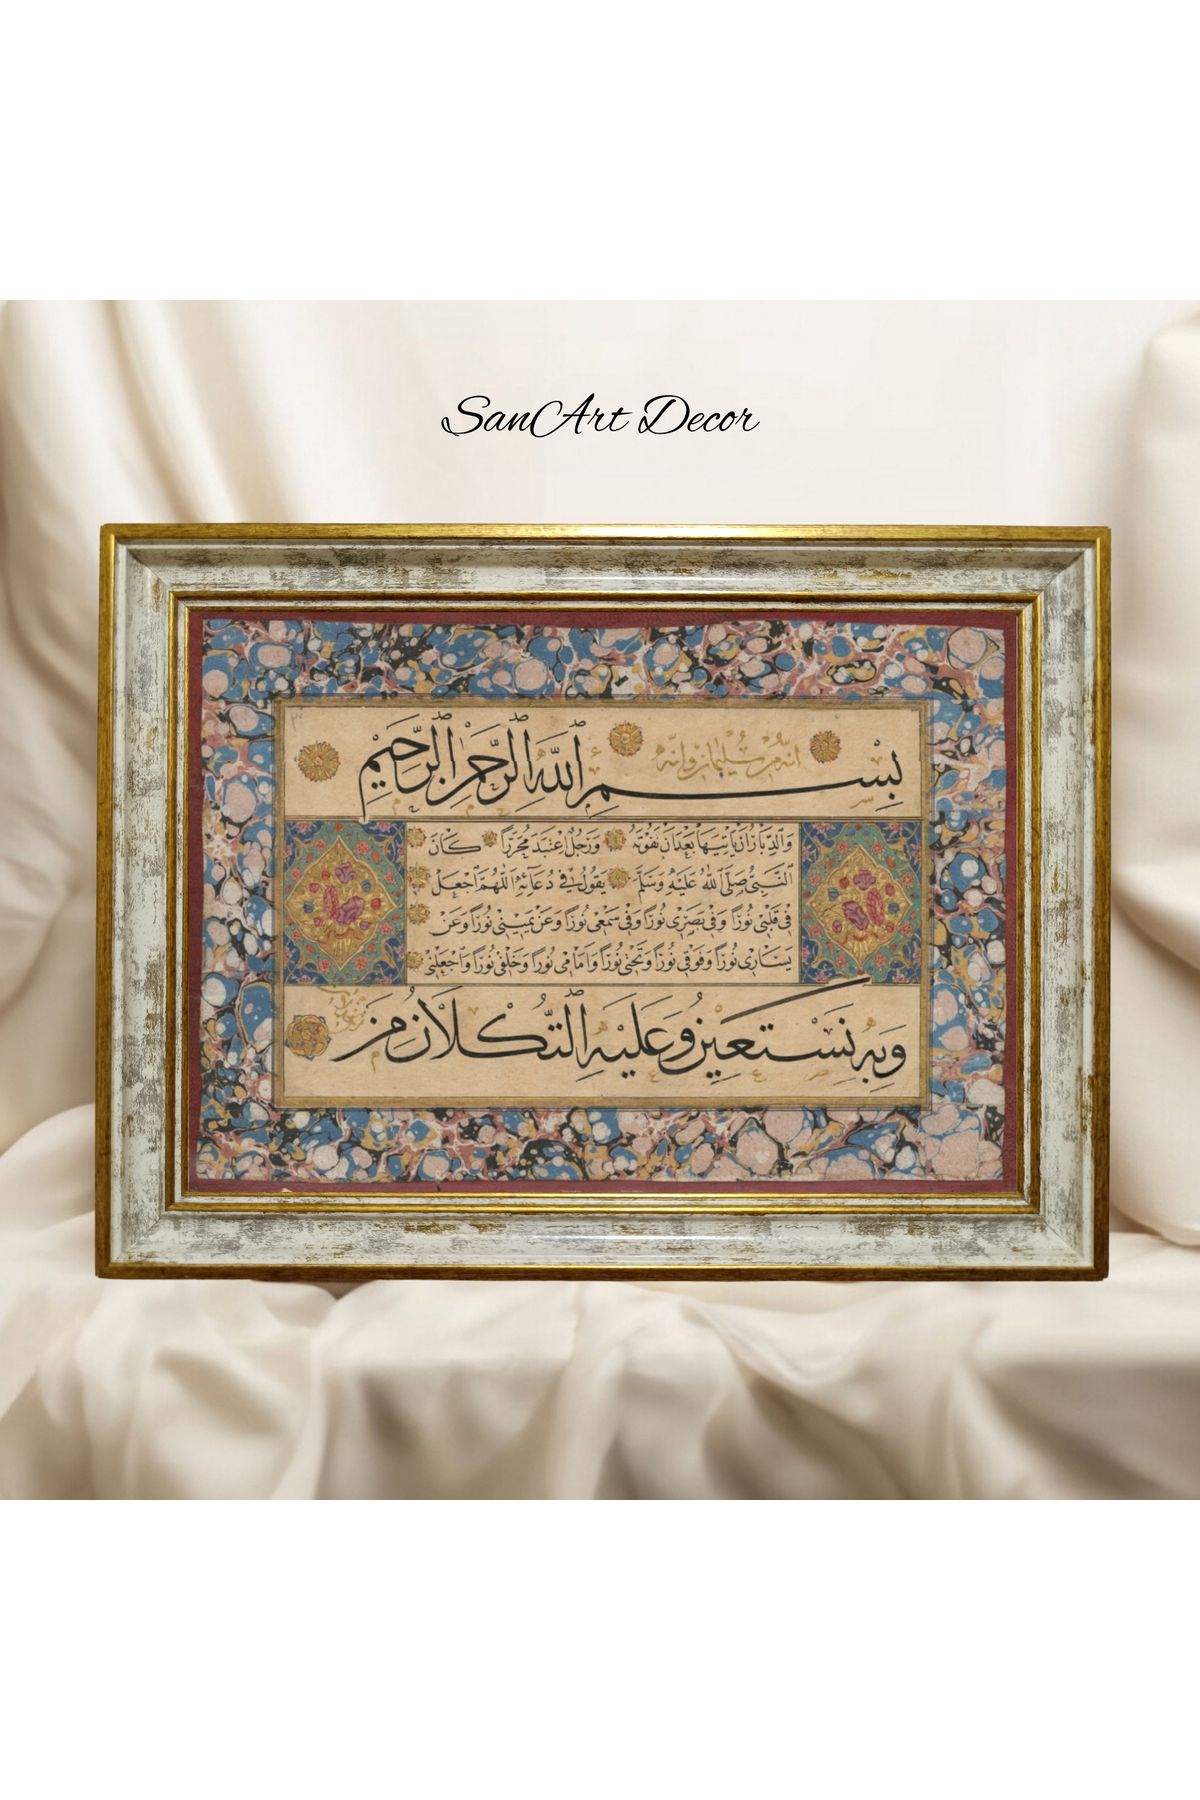 SanArt Decor
انه من سليمان وانه
بِسْمِ اللهِ الرَّحْمٰنِ الرَّحِيمِ
وَالدِّبَارُ اَنْ يَاْتِيَهَا بَعْدَ اَنْ تَفُوتَهُ وَرَجُلٌ اِعْتَبَدَ مُحَرَّرًا كَانَ
النَّبِىُّ صَلَّى اللهُ عَلَيْهِ وَسَلَّمَ يَقُولُ فِى دُعَائِهِ اَللّٰهُمَّ اجْعَلْ
فِى قَلْبِى نُورًا وَفِى بَصَرِى نُورًا وَفِى سَمْعِى نُورًا وَعَنْ يَمِينِى نُورًا وَعَنْ
يَسَارِى نُورًا وَفَوْقِى نُورًا وَتَحْتِى نُورًا وَاَمَامِى نُورًا وَخَلْفِى نُورًا وَاجْعَلْنِى
وَبِهِ نَسْتَعِينُ وَعَلَيْهِ التُّكْلَانُ مِنْ